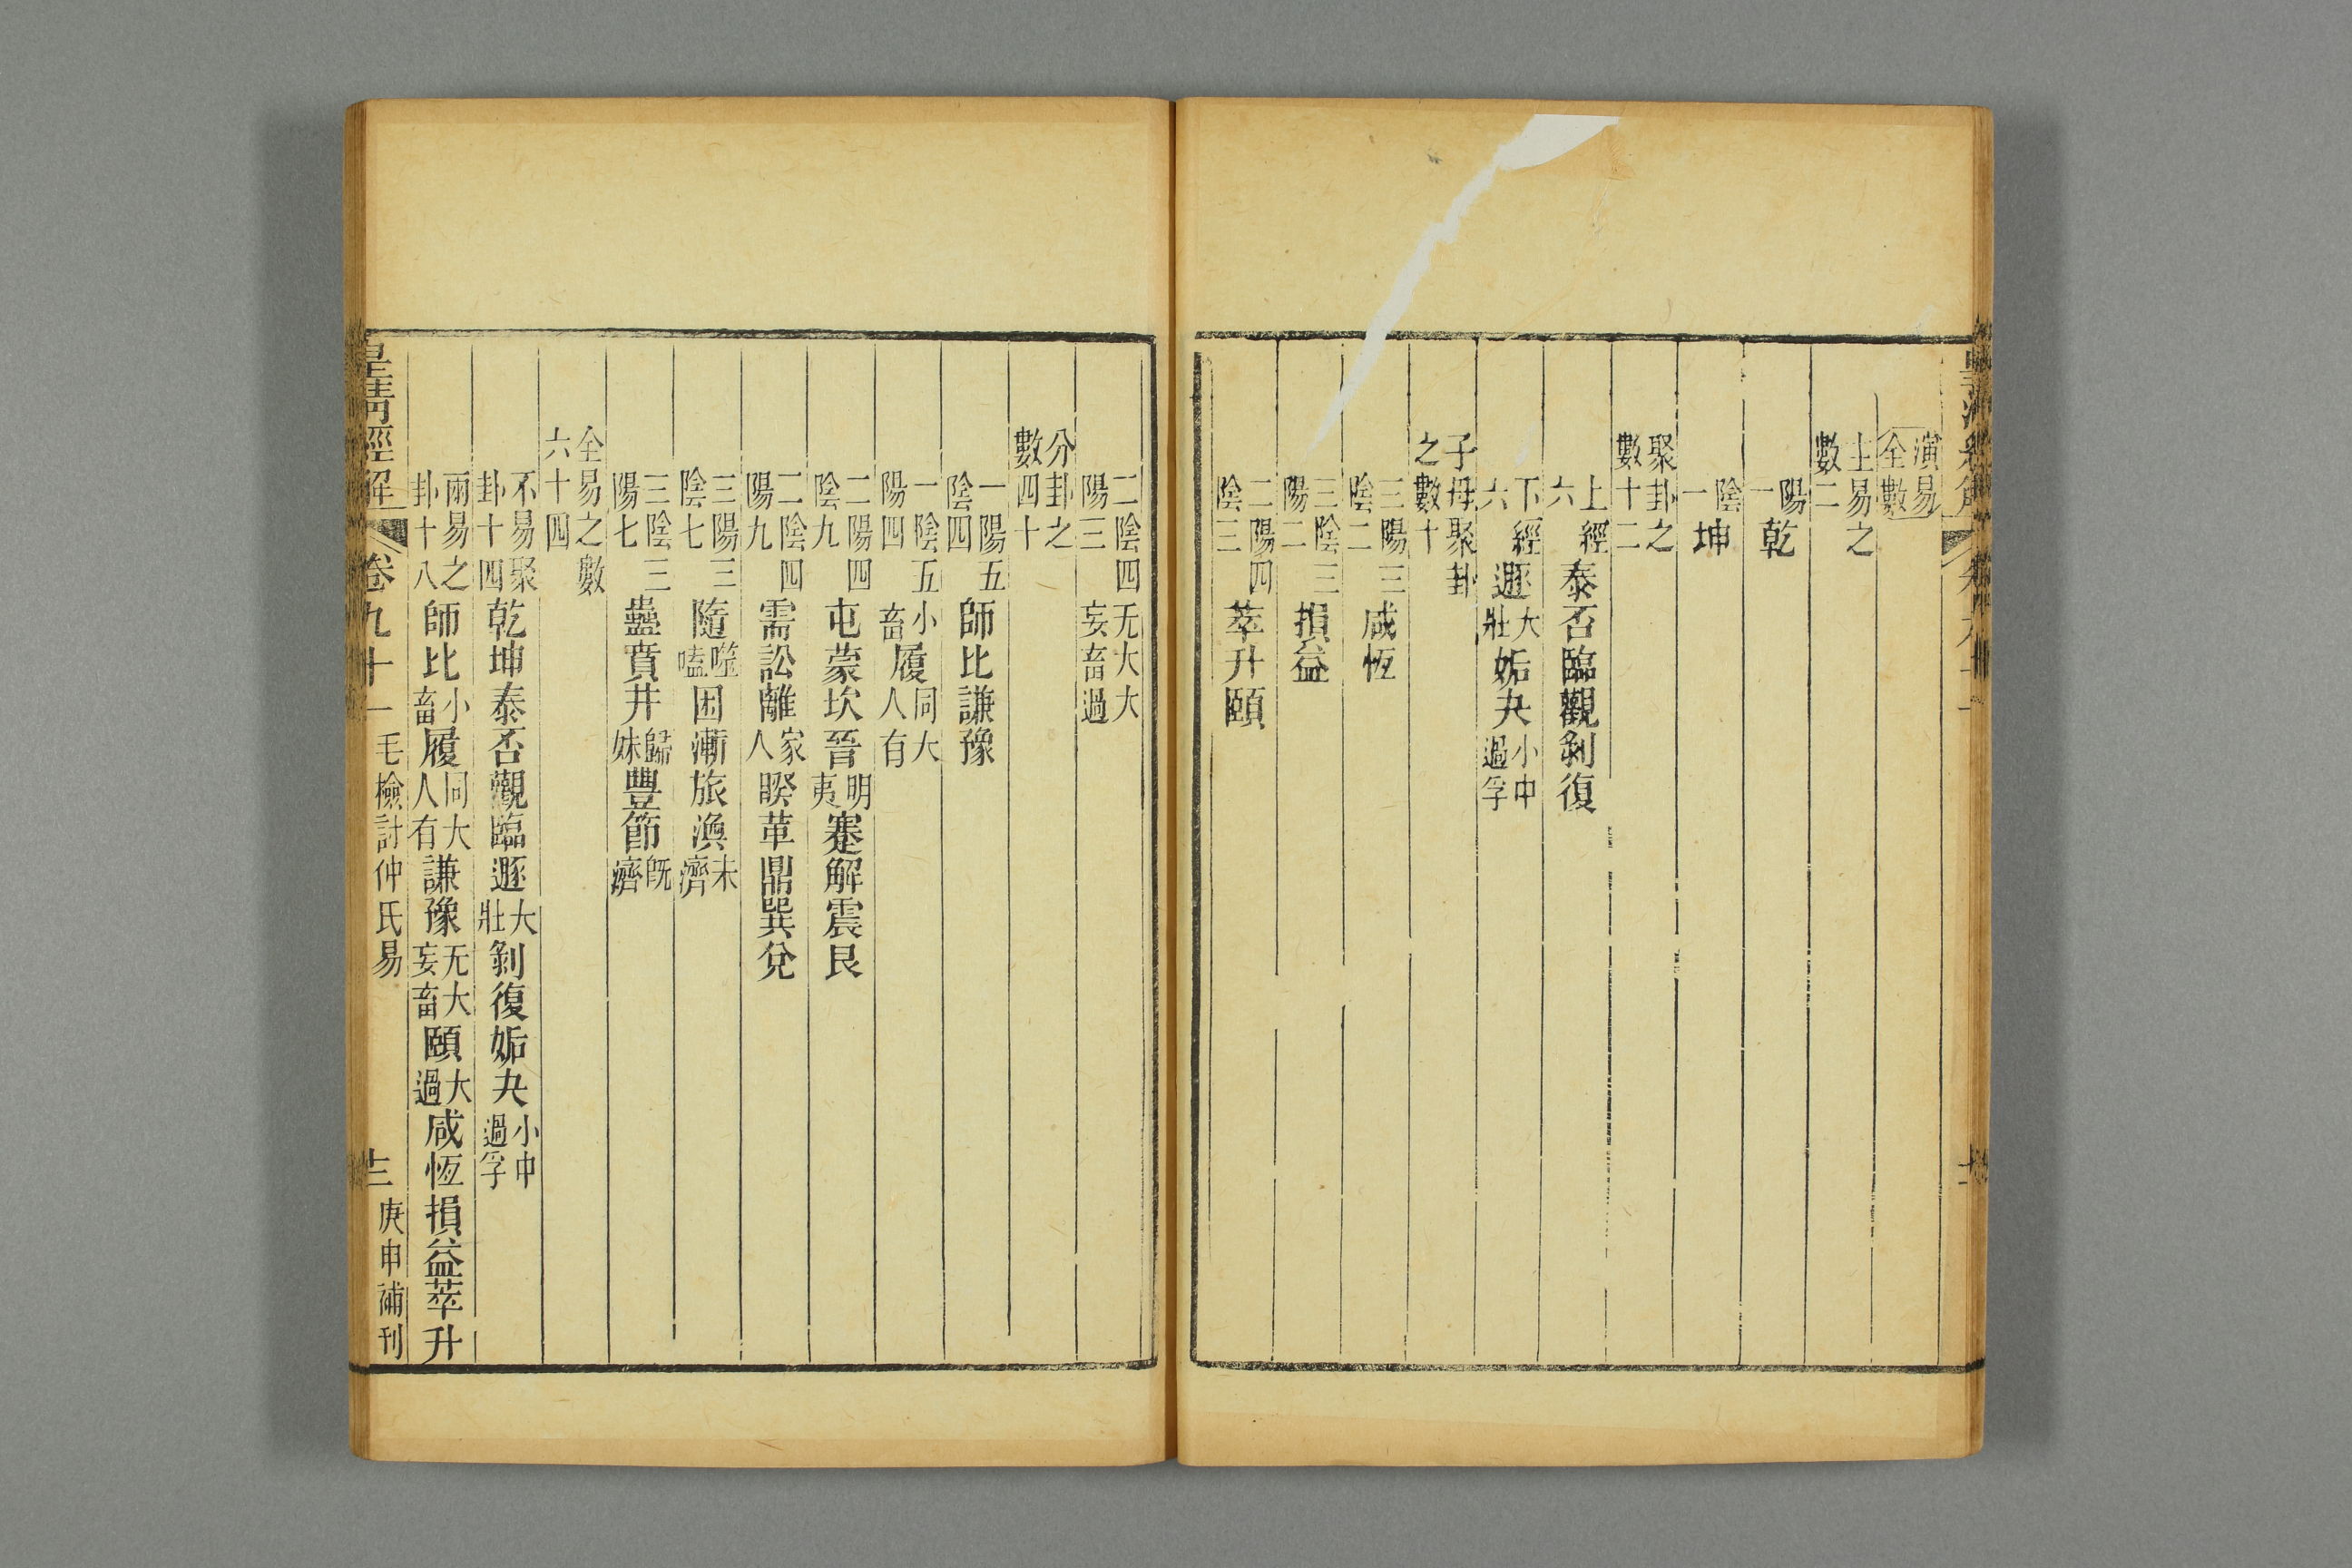 演易全數
主易之數二
陽一乾
陰一坤
聚卦之數十二
上經六泰否臨觀剝復
下經六遯大壯姤夬小過中孚
子母聚卦之數十
三陽三陰二咸恆
三陰三陽二損益
二陽四陰三萃升頤
二陰四陽三无妄大畜大過
分卦之數四十
一陽五陰四師比謙豫
一陰五陽四小畜履同人大有
二陽四陰九屯蒙坎晉明夷蹇解震艮
二陰四陽九需訟離家人睽革鼎巽兌
三陽三陰七隨噬嗑困漸旅渙未濟
三陰三陽七蠱賁井歸妹豐節既濟
全易之數六十四
不易聚卦十四乾坤泰否觀臨遯大壯剝復姤夬小過中孚
兩易之卦十八師比小畜履同人大有謙豫无妄大畜頤大過咸恆損益萃升
皇清經解 卷九十一 毛檢討仲氏易 庚申補刊